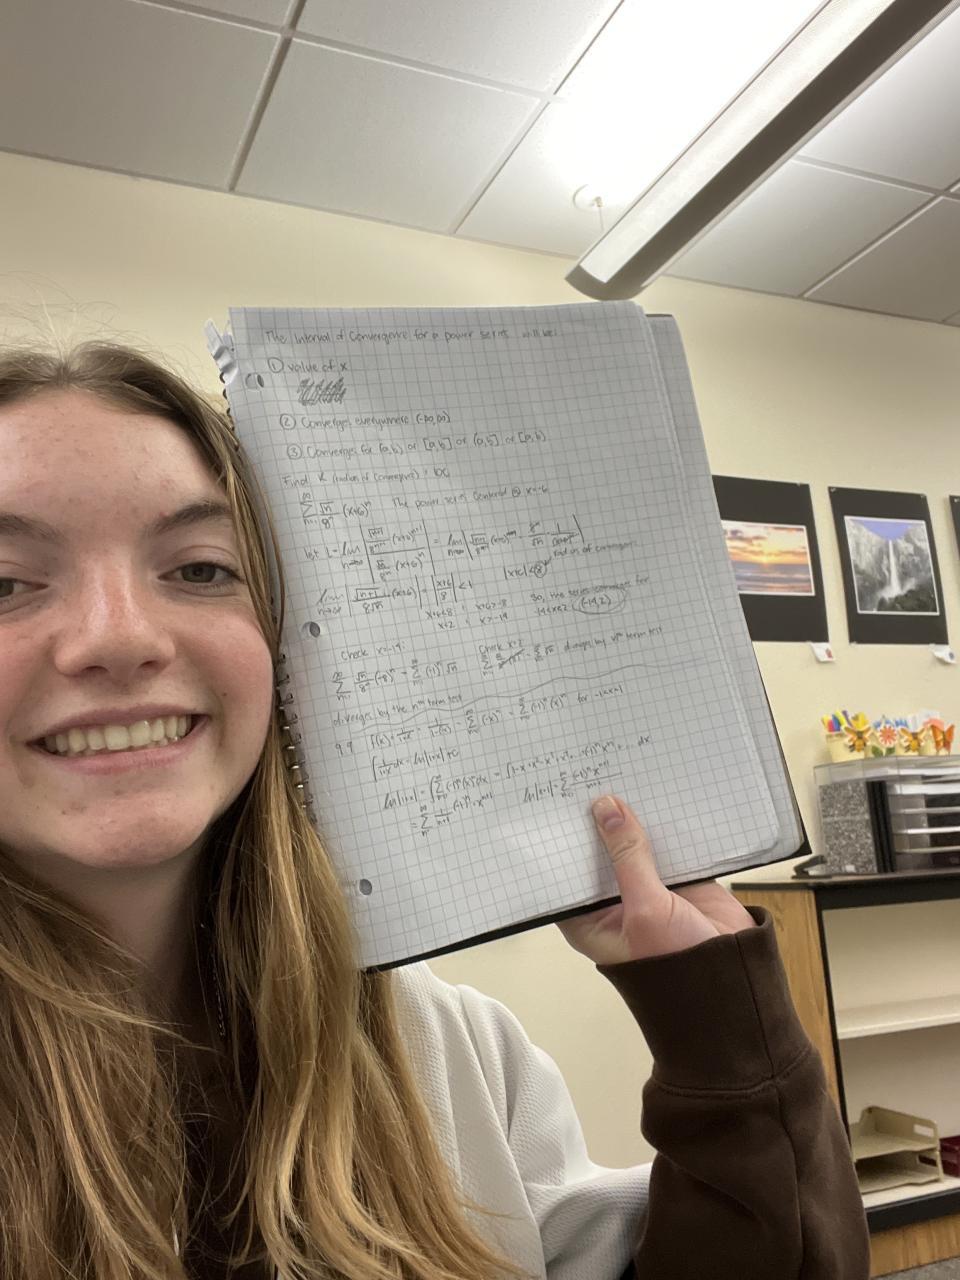 The Interval of Convergence for a power series will be:
① value of x
② Converges everywhere (-∞,∞)
③ Converges for (a,b) or [a,b] or (a,b] or [a,b)
Find R (radius of convergence) & IOC
∞∑n=1 √n/8ⁿ (x+6)ⁿ The power series centered @ x=-6
let L = lim n→∞ | √(n+1)/8ⁿ⁺¹ (x+6)ⁿ⁺¹ / √n/8ⁿ (x+6)ⁿ | = lim n→∞ | √(n+1)/8ⁿ⁺¹ (x+6)ⁿ⁺¹ · 8ⁿ/√n · 1/(x+6)ⁿ |
lim n→∞ | √(n+1)/8√n (x+6) | = | x+6/8 | < 1 |x+6| < 8 radius of convergence
x+6<8 ; x+6>-8
x<2 ; x>-14
So, the series converges for
-14<x<2 (-14,2)
Check x=-14:
∞∑n=1 √n/8ⁿ (-8)ⁿ = ∞∑n=1 (-1)ⁿ √n
diverges by the nth term test
Check x=2
∞∑n=1 √n/8ⁿ (8)ⁿ = ∞∑ √n diverges by nth term test
9.9 f(x) = 1/1+x = 1/1-(-x) = ∞∑n=0 (-x)ⁿ = ∞∑n=0 (-1)ⁿ (x)ⁿ for -1<x<1
∫ 1/1+x dx = ln|1+x|+C
ln|1+x| = ∫ ∞∑n=0 (-1)ⁿ (x)ⁿ dx = ∫ 1-x+x²-x³+x⁴... +(-1)ⁿ xⁿ+... dx
= ∞∑n 1/n+1 (-1)ⁿ · xⁿ⁺¹
ln|x+1| = ∞∑n=0 (-1)ⁿ xⁿ⁺¹/n+1